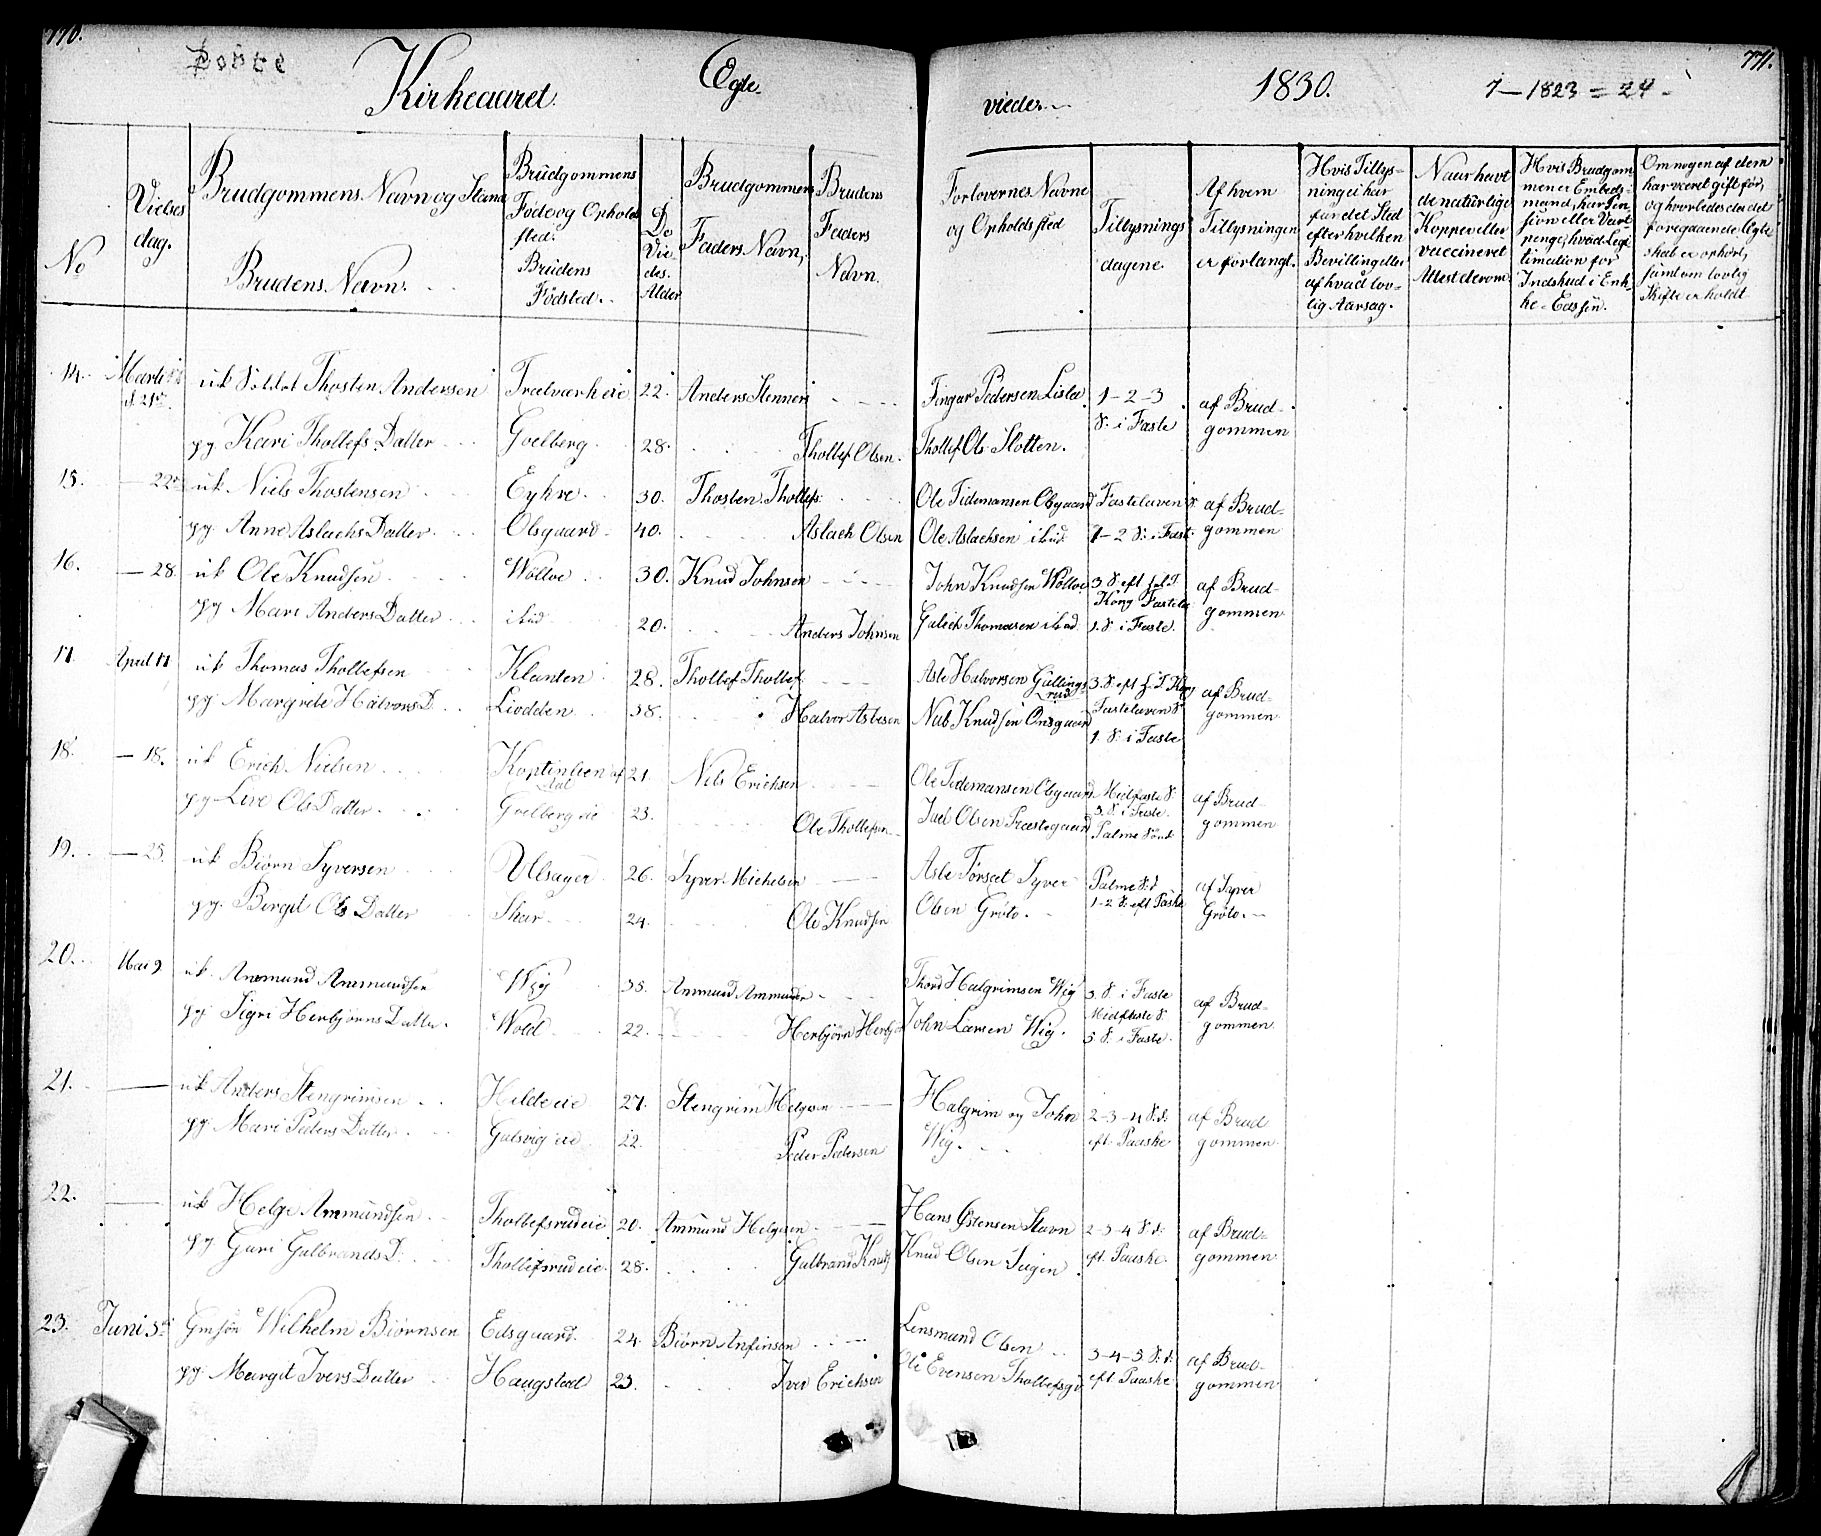 770.
771.
Kirkeaaret. Ægte- vieder. 1830. 7—1823=24-
No
Vielses dag.
Brudgommens Navn og Stand
Brudens Navn.
Brudgommens Føde og Ophold sted.
Brudens Fødsted.
De Vie des. Alder
Brudgommens Faders Navn,
Brudens Faders Navn.
Forlovernes Navne og Opholdsted
Tillysnings dagene.
Af hvem Tillysningen er forlangt.
Hvis Tillys- ning ei har fundet Sted efter hvilken Bevilling eller af hvad lov- lig Aarsag.
Naar havt de naturlige Kopper eller vaccineret Attest derom.
Hvis Brudgom men er Embeds- mand, har Pen sion eller Vart penge, hvad Legi timation for Indskud i Enk- ke-Cassen.
Om nogen af dem har været gift før, og hvorledes da det foregaaende Ægte skab er ophørt, samt om lovlig Skifte er holdt
14. Martii d. 21de uk Soldat Thosten Andersen Trælværk eie 22. Anders Stenneri Fingar Pedersen Lislea 1-2-3 af Brud-
pg. Kari Thollefs Datter Goelberg. 28. Thollef Olsen. Thollef Ols Slotten. S. i Faste gommen
15. — 22de uk. Niels Thostensen Eykre. 30. Thosten Thollefs: Ole Tidemansen Olsgaard Fastelaven S. af Brud-
pg. Anne Aslachs Datter. Olsgaard 40. Aslach Olsen Ole Aslachsen ibid: 1-2 S: i Fast. gommen
16. — 28. uk Ole Knudsen Wollve 30. Knud Johnsen John Knudsen Wollve 3. S. eft h. 3 K. af Brud-
pg Mari Anders Datter ibid 20. Anders Johnsen Gulich Thomasen ibid 1. S. i Faste. gommen
17 April 11 uk Thomas Thollefsen Klanten 28. Thollef Thollef. Asle Halvorsen Gullings- rud 3. S. eft h. 3 Kong af Brud-
pg Margrete Halvors D. Liodden 38. Halvor Aslesen Nub Knudsen Onsgaard Fastelaven S. gommen
1. S. i Faste
18. — 18. uk Erich Nielsen 21. Nils Erichsen Ole Tidemansen Olsgaard Midfaste S. af Brud-
pg Live Ols Datter. Goelberg eie 23. Ole Thollefsen Juel Olsen Præstegaard 3. S. i Faste. Palme Sønd gommen
19. — 25. uk Biørn Syversen Ulsager 26. Syver Michelsen Asle Førseet Syver Palme S:d af Syver
pg. Bergit Ols Datter Skar 24. Ole Knudsen Olsen Grøto. 1-2 S: eft Paaske Grøto.
20. Mai 9 uk. Ammund Ammundsen Wig 35. Ammund Ammunds Thord Halgrimsen Wig 3. S. i Faste af Brud-
pg Sigri Herbjørns Datter. Wold 22. Herbjørn Herbj John Larsen Wig. Midfaste S 5 S. i Faste. gommen
21. — uk Anders Stengrimsen Hilde eie 27. Stengrim Helgesen Halgrim og John 2-3-4 S.d. af Brud
pg. Mari Peders Datter. Gulsvig eie 22. Peder Pedersen Wig. eft. Paaske gommen
22. — uk Helge Ammundsen Thollefsrud eie 20. Ammund Helgesen Hans Østensen Stavn 2-3-4 S.d: af Brud-
pg Guri Gulbrands D: Thollefsrud eie 28. Gulbrand Knuds Knud Olsen Sugin eft. Paaske. gommen
23. Juni 3die Gmsøn Wilhelm Biørnsen Edsgaard. 24 Biørn Anfinsen Lensmand Olsen 3-4-5 S:d: af Brud-
pg. Margit Ivers Datter Haugstad 23. Iver Erichsen Ole Evensen Thollefsgd eft Paaske gommen